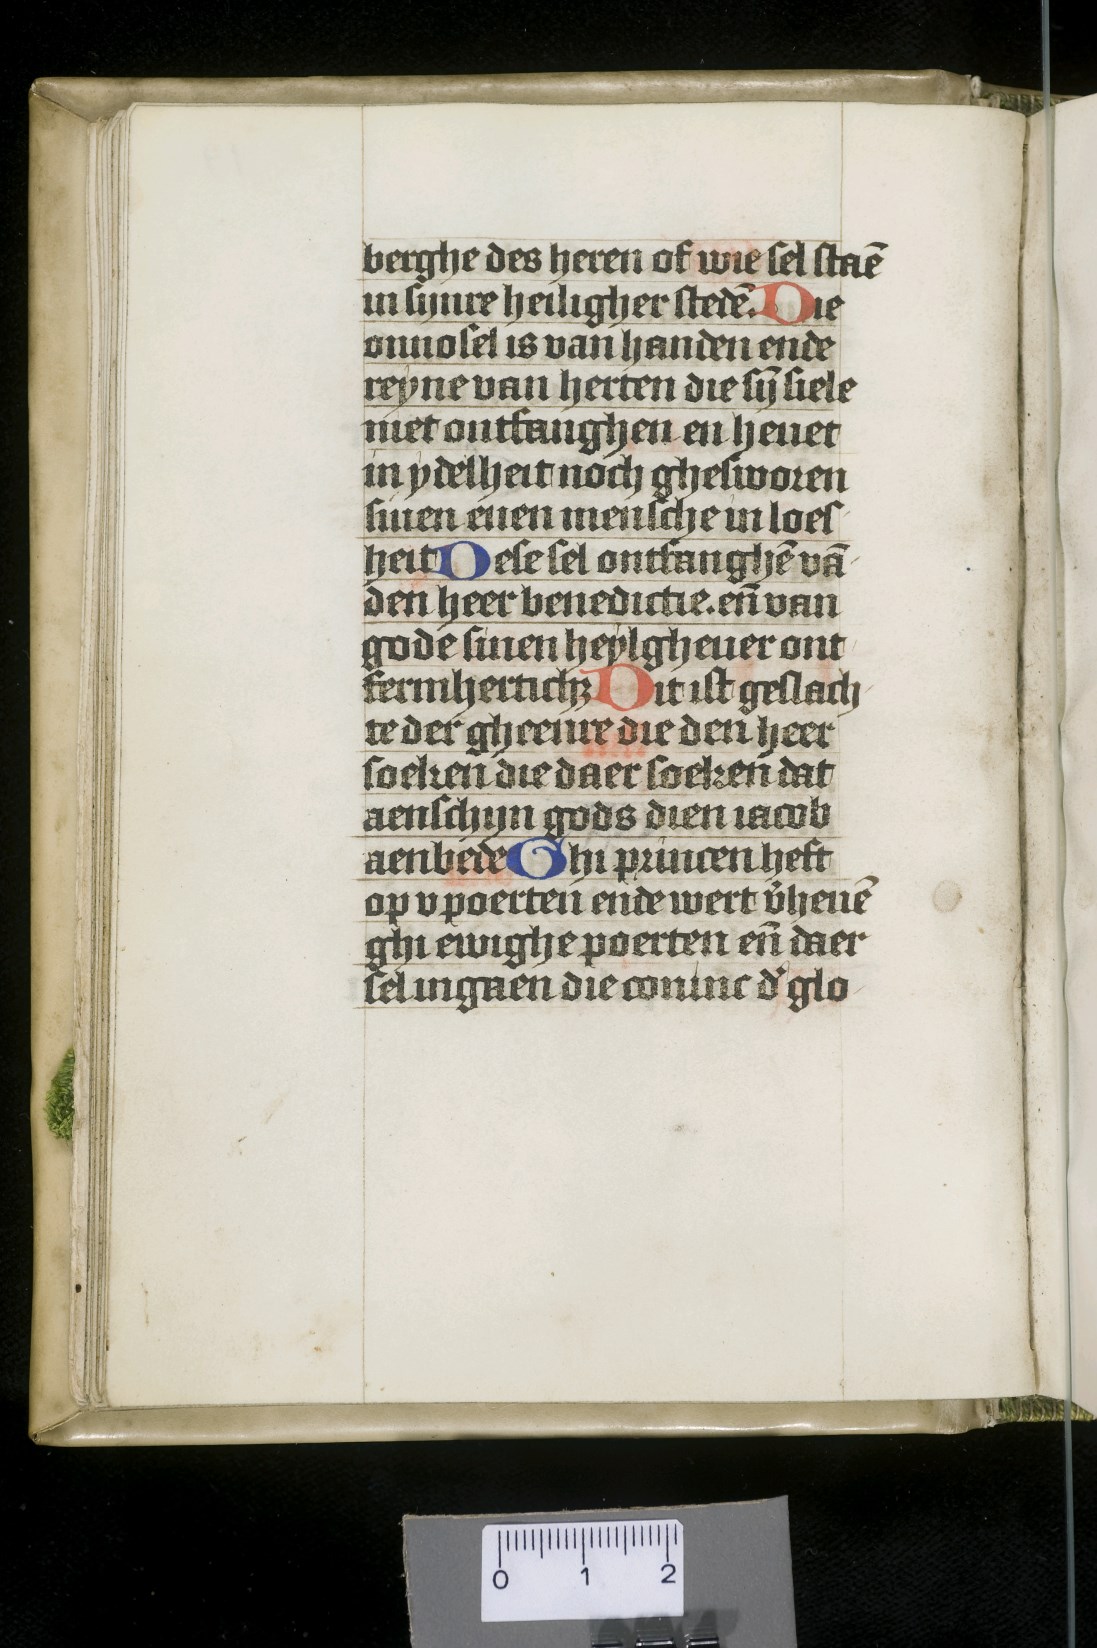 berghe des heren of wie sel staē
in sijnre heiligher stedē. Die
onnosel is van handen ende
reyne van herten die sij̄ siele
niet ontfanghen en heuet
in ydelheit noch ghesworen
sinen euen mensche in loes
heit Dese sel ontfanghē vā
den heer benedictie. en̄ van
gode sinen heylgheuer ont
fermherticħꝫ Dit ist geslach
te der gheenre die den heer
soeken die daer soeken dat
aenschijn gods dien iacob
aenbede Ghi princen heft
op v poerten ende wert v̄heuē
ghi ewighe poerten en̄ daer
sel ingaen die coninc d' glo
0 1 2